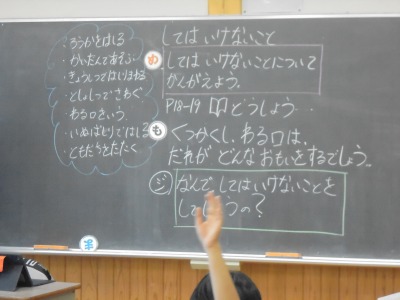 ろうかをはしる
かいだんであそぶ
きょうしつではしりまわる
としょしつでさわぐ
わる口をいう
いぬばしりではしる
ともだちをたたく
してはいけないこと
め
してはいけないことについて
かんがえよう。
P18-19 どうしよう…
も
くつかくし、わる口は、
だれが どんなおもいをするでしょう。
ジ
なんで してはいけないことを
してしまうの?